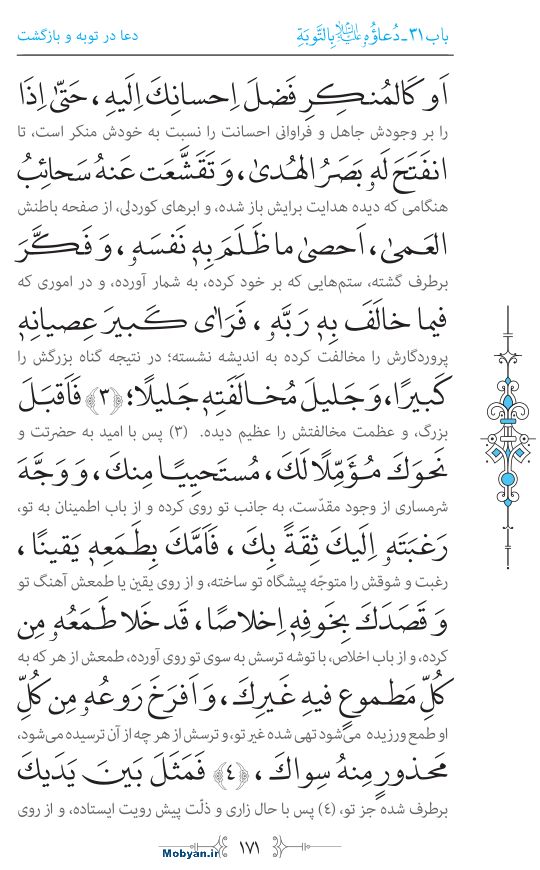 باب ۳۱ـ دُعاؤُه علیه‌السلام بِالتَّوبَةِ
دعا در توبه و بازگشت
اَو کَالمُنکِرِ فَضلَ اِحسانِكَ اِلَیهِ، حَتّیٰ اِذَا
را بر وجودش جاهل و فراوانی احسانت را نسبت به خودش منکر است، تا
انفَتَحَ لَهُ بَصَرُ الهُدیٰ، وَ تَقَشَّعَت عَنهُ سَحائِبُ
هنگامی که دیده هدایت برایش باز شده، و ابرهای کوردلی، از صفحه باطنش
العَمیٰ، اَحصیٰ ما ظَلَمَ بِهِ نَفسَهُ، وَ فَکَّرَ
برطرف گشته، ستم‌هایی که بر خود کرده، به شمار آورده، و در اموری که
فیما خالَفَ بِهِ رَبَّهُ، فَرَاٰی کَبیرَ عِصیانِهِ
پروردگارش را مخالفت کرده به اندیشه نشسته؛ در نتیجه گناه بزرگش را
کَبیرًا، وَ جَلیلَ مُخالَفَتِهِ جَلیلًا؛ ﴿۳﴾ فَاَقبَلَ
بزرگ، و عظمت مخالفتش را عظیم دیده. (۳) پس با امید به حضرتت و
نَحوَكَ مُؤَمِّلًا لَكَ، مُستَحیِیًا مِنكَ، وَ وَجَّهَ
شرمساری از وجود مقدّست، به جانب تو روی کرده و از باب اطمینان به تو،
رَغبَتَهُ اِلَیكَ ثِقَةً بِكَ، فَاَمَّكَ بِطَمَعِهِ یَقینًا،
رغبت و شوقش را متوجّه پیشگاه تو ساخته، و از روی یقین با طمعش آهنگ تو
وَ قَصَدَكَ بِخَوفِهِ اِخلاصًا، قَد خَلا طَمَعُهُ مِن
کرده، و از باب اخلاص، با توشه ترسش به سوی تو روی آورده، طمعش از هر که به
کُلِّ مَطموعٍ فیهِ غَیرِكَ، وَ اَفرَخَ رَوعُهُ مِن کُلِّ
او طمع ورزیده می‌شود تهی شده غیر تو، و ترسش از هر چه از آن ترسیده می‌شود،
مَحذورٍ مِنهُ سِواكَ، ﴿٤﴾ فَمَثَلَ بَینَ یَدَیكَ
برطرف شده جز تو، (۴) پس با حال زاری و ذلّت پیش رویت ایستاده، و از روی
۱۷۱
Mobyan.ir